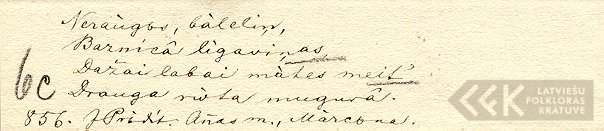 Neraugos, bālelin,
Baznicâ ligaviņas,
6c
Dažai labai mātes meit'
Drauga rota mugurâ.
856. J Pridit. Añas m., Mārcena.
LATVIEŠU
FOLKLORAS
KRĀTUVE